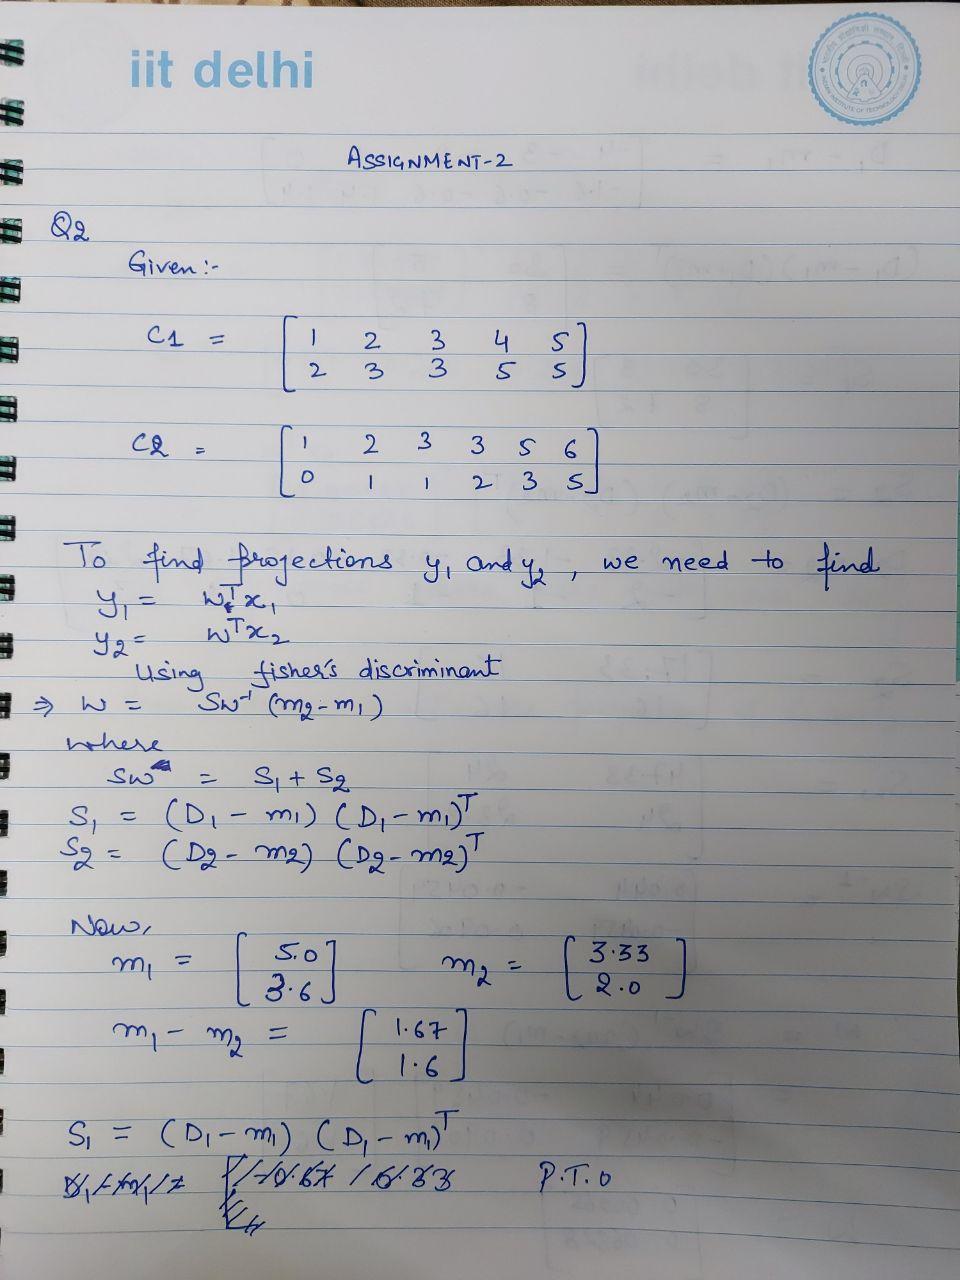 iit delhi
ASSIGNMENT-2
Q2
Given:-
C1 = [1 2 3 4 5
2 3 3 5 5]
C2 = [1 2 3 3 5 6
0 1 1 2 3 5]
To find projections y₁ and y₂, we need to find
y₁ = wᵀx₁
y₂ = wᵀx₂
Using fisher's discriminant
⇒ w = Sw⁻¹ (m₂-m₁)
where
Sw = S₁ + S₂
S₁ = (D₁ - m₁) (D₁ - m₁)ᵀ
S₂ = (D₂ - m₂) (D₂ - m₂)ᵀ
Now,
m₁ = [5.0 m₂ = [3.33
3.6] 2.0]
m₁ - m₂ = [1.67
1.6]
S₁ = (D₁ - m₁) (D₁ - m₁)ᵀ
P.T.O